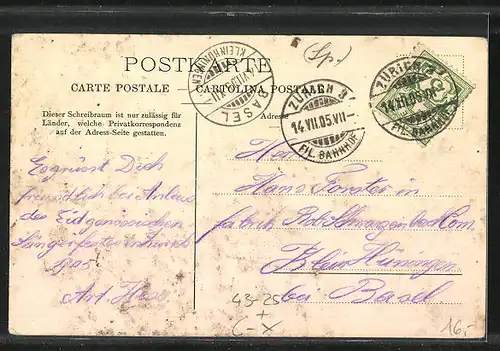 (Sp.)
POSTKARTE
CARTE POSTALE CARTOLINA POSTALE
Dieser Schreibraum ist nur zulässig für
Länder, welche Privatkorrespondenz
auf der Adress-Seite gestatten.
Adresse
BASEL
KLEINHÜNINGEN
ZÜRICH 3
14.VII.05.VII
FIL. BAHNHOF
ZÜRICH
14.VII.05
FIL. BAHNHOF
Es grüsst Dich
freundlich bei Anlass
des Eidgenössischen
Sängerfestes in Zürich
1905
Art.
Herrn
Hans Forster in
Fabrik
Klein Hüningen
bei Basel.
43-25
+
C-X
16.-